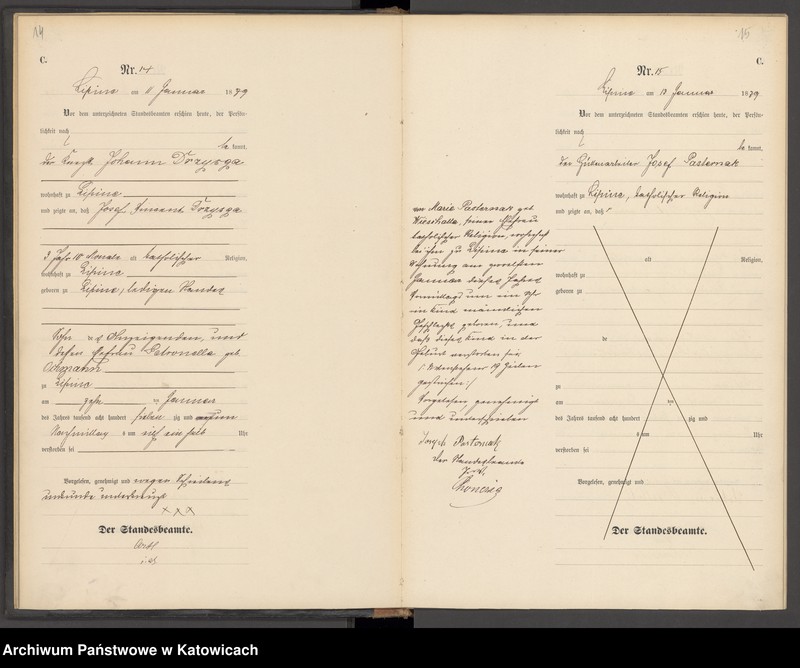 14
C.
Nr. 14
Lipine am 11 Januar 1879
Vor dem unterzeichneten Standesbeamten erschien heute, der Persön-
lichkeit nach
be kannt,
der Johann Drzysga
wohnhaft zu Lipine
und zeigte an, daß Josef Vincent Drzysga
3 Jahr 10 Monate alt katholischer Religion,
wohnhaft zu Lipine
geboren zu Lipine, ledigen Standes
Sohn des Anzeigenden, und
dessen Ehefrau Petronella geb.
zu Lipine
am zehn ten Januar
des Jahres tausend acht hundert sieben zig und neun
Nachmittag s um ein halb Uhr
verstorben sei
Vorgelesen, genehmigt und wegen Schreibens
unkunde unterkreuzt
XXX
Der Standesbeamte.
15
C.
Nr. 15
Lipine am 13 Januar 1879
Vor dem unterzeichneten Standesbeamten erschien heute, der Persön-
lichkeit nach
be kannt,
der Hüttenarbeiter Josef Pasternak
wohnhaft zu Lipine, katholischer Religion
und zeigte an, daß
alt Religion,
wohnhaft zu
geboren zu
de
zu
am ten
des Jahres tausend acht hundert zig und
s um Uhr
verstorben sei
Vorgelesen, genehmigt und
Der Standesbeamte.
von Marie Pasternak geb.
seiner Ehefrau
katholischer Religion, wohnhaft
bei ihm zu Lipine in seiner
Wohnung am zwölften
Januar dieses Jahres
Vormittags um ein Uhr
ein Kind männlichen
Geschlecht geboren, und
daß dieses Kind in der
Geburt verstorben sei
19 Zeilen
gestrichen /
Vorgelesen genehmigt
und unterschrieben
Pasternak
Der Standesbeamte
Archiwum Państwowe w Katowicach